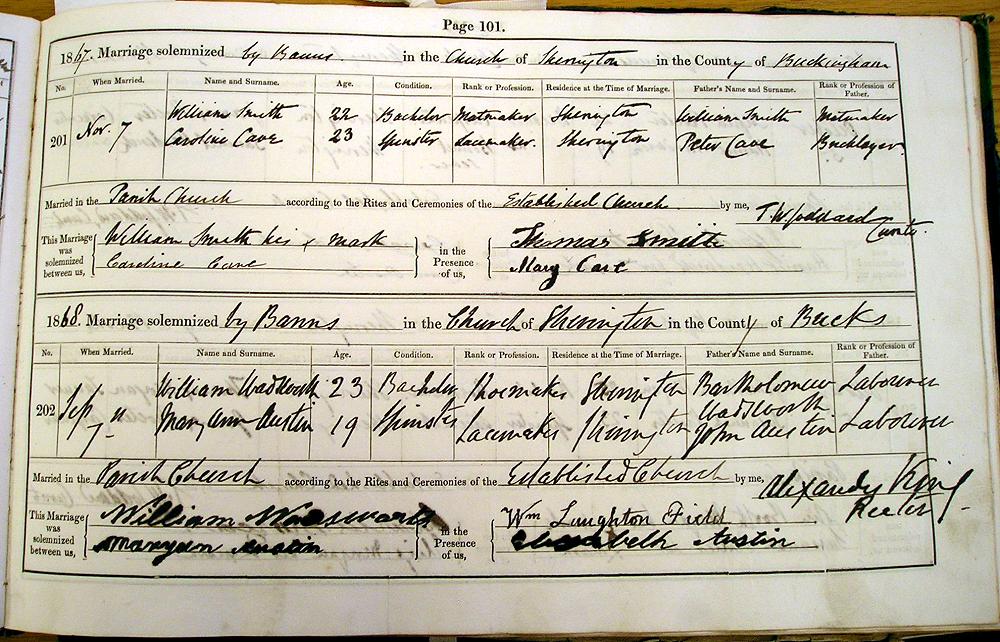 Page 101.
1867. Marriage solemnized by Banns in the Church of Sherington in the County of Buckingham
No. When Married. Name and Surname. Age. Condition. Rank or Profession. Residence at the Time of Marriage. Father's Name and Surname. Rank or Profession of Father.
201 Nov. 7 William Smith 22 Bachelor Matmaker Sherington William Smith Matmaker
Caroline Cave 23 Spinster Lacemaker. Sherington Peter Cave Bricklayer.
Married in the Parish Church according to the Rites and Ceremonies of the Established Church by me, Curate.
This Marriage was solemnized between us, William Smith his x mark in the Presence of us, Thomas Smith
Caroline Cave Mary Cave
1868. Marriage solemnized by Banns in the Church of Sherington in the County of Bucks
No. When Married. Name and Surname. Age. Condition. Rank or Profession. Residence at the Time of Marriage. Father's Name and Surname. Rank or Profession of Father.
202 Sep 7th William Wadsworth 23 Bachelor Shoemaker Sherington Bartholomew Wadsworth Labourer
Mary Ann Austin 19 Spinster Lacemaker Sherington John Austin Labourer
Married in the Parish Church according to the Rites and Ceremonies of the Established Church by me, Alexander King Rector
This Marriage was solemnized between us, William Wadsworth in the Presence of us, Wm Laughton Field
Maryann Austin Elisabeth Austin